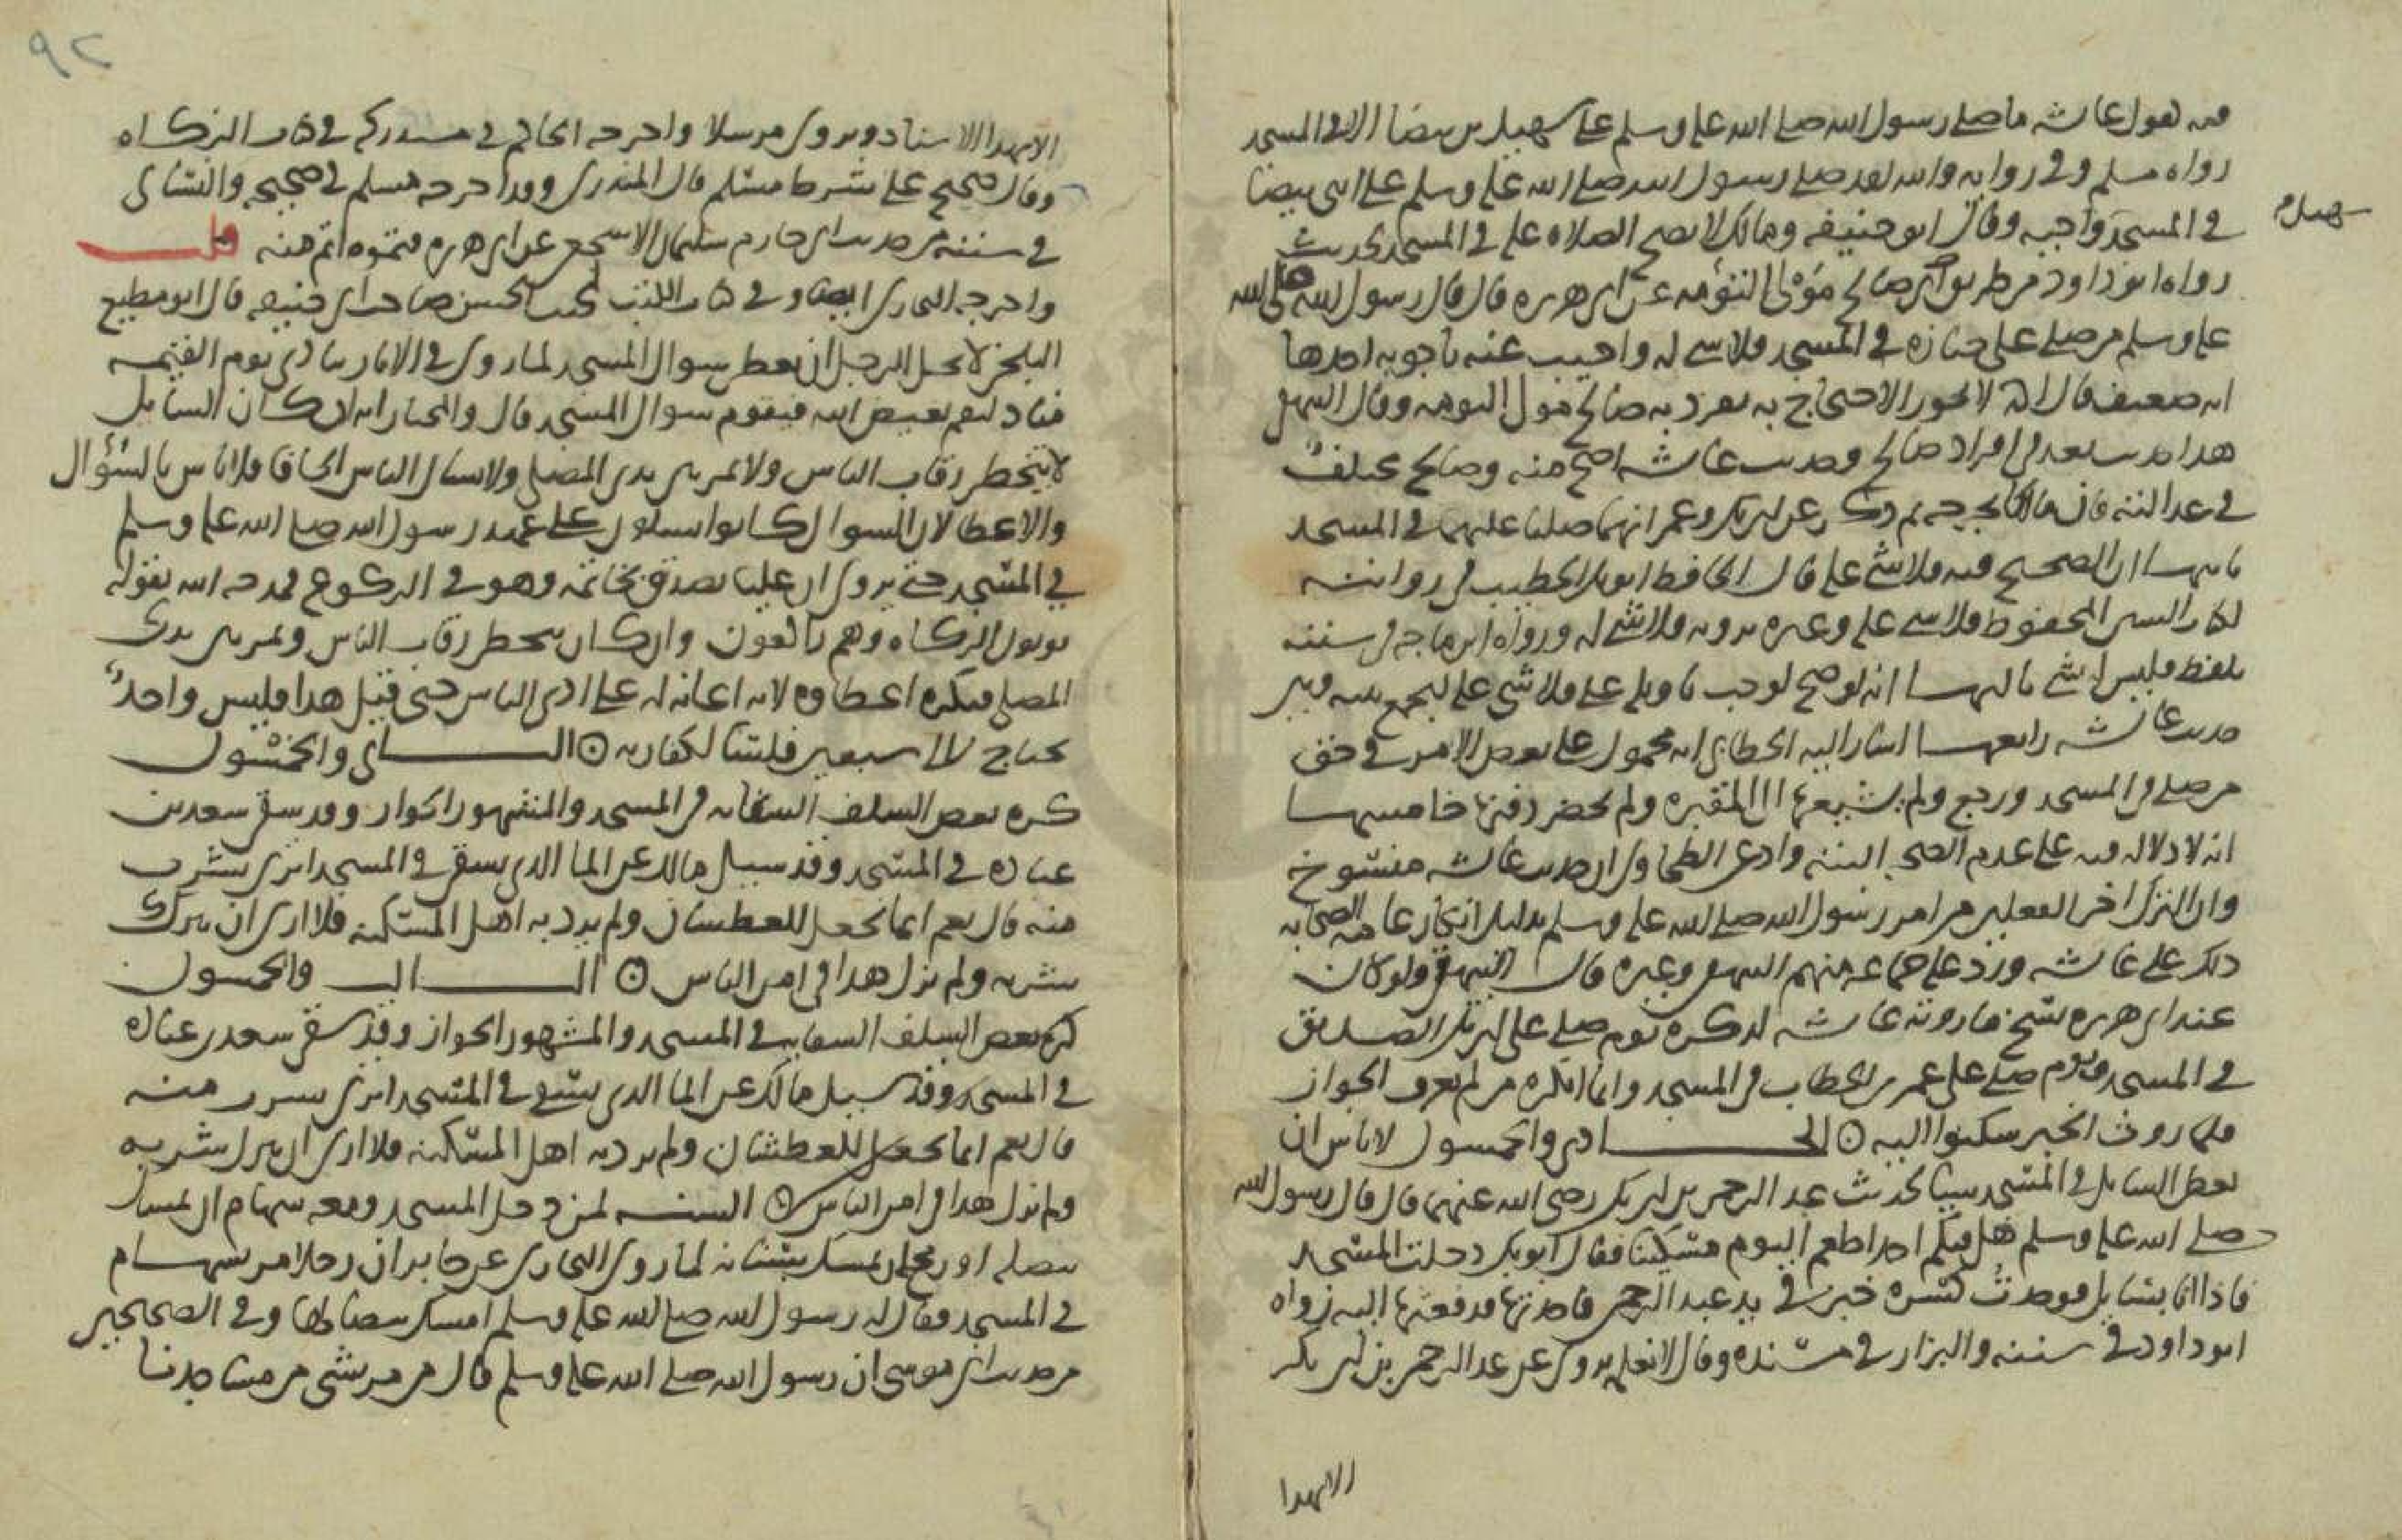 فيه لقول عائشة ما صلى رسول الله صلى الله عليه وسلم على سهيل بن بيضا الا في المسجد
رواه مسلم وفي رواية والله لقد صلى رسول الله صلى الله عليه وسلم على ابني بيضا
سهيل م
في المسجد واخيه وقال ابو حنيفه ومالك لا تصح الصلاه عليه في المسجد لحديث
رواه ابو داود من طريق صالح مولى التوءمه عن ابي هريره قال قال رسول الله صلى الله
عليه وسلم من صلى على جنازه في المسجد فلا شي له واجيب عنه باجوبه احدها
انه ضعيف قال لا يجوز الاحتجاج به تفرد به صالح مولى التومه وقال البيهقي
هذا حديث يعد في افراد صالح وحديث عائشه اصح منه وصالح مختلف
في عدالته كان مالك يجرحه ثم ذكر عن ابي بكر وعمر انهما صلينا عليهما في المسجد
ثانيها ان الصحيح فيه فلا شي عليه قال الحافظ ابو بكر الخطيب في روايته
لكتاب السنن المحفوظ فلا شي عليه وغيره يرويه فلا شي له ورواه ابن ماجه في سننه
بلفظ فليس له شي ثالثها انه لو صح لوجب تاويله على فلا شي عليه ليجمع بينه وبين
حديث عائشه رابعها اشار اليه الخطابي انه محمول على نقص الاجر في حق
من صلى في المسجد ورجع ولم يشيعها الى المقبره ولم يحضر دفنها خامسها
انه لا دلاله فيه على عدم الصحه البته وادعى الطحاوي ان حديث عائشه منسوخ
وان الترك اخر الفعلين من امر رسول الله صلى الله عليه وسلم بدليل انكار عامة الصحابه
ذلك على عائشه ورد عليه جماعه منهم البيهقي وغيره قال البيهقي ولو كان
عند ابي هريره نسخ ما روته عائشه لذكره يوم صلي على ابي بكر الصديق
في المسجد ويوم صلي على عمر بن الخطاب في المسجد وانما انكره من لم يعرف الجواز
فلما روت الخبر سكتوا اليه ۞ الحادي والخمسون لا باس ان
يعطي السايل في المسجد شيا لحديث عبد الرحمن بن ابي بكر رضي الله عنهما قال قال رسول الله
صلى الله عليه وسلم هل فيكم احد اطعم اليوم مسكينا فقال ابو بكر دخلت المسجد
فاذا انا بسايل فوجدت كسره خبز في يد عبد الرحمن فاخذتها فدفعتها اليه رواه
ابو داود في سننه والبزار في مسنده وقال لا نعلمه يروى عن عبد الرحمن بن ابي بكر
الا بهذا
٩٢
الا بهذا الاسناد ويروى مرسلا واخرجه الحاكم في مستدركه في كتاب الزكاه
وقال صحيح على شرط مسلم قال المنذري وقد اخرجه مسلم في صحيحه والنسائي
في سننه من حديث ابي حازم سلمان الاشجعي عن ابي هريره بنحوه اتم منه قلت
واخرجه البخاري ايضا وفي كتاب الكسب لمحمد بن الحسن صاحب ابي حنيفه قال ابو مطيع
البلخي لا يحل للرجل ان يعطي سوال المسجد لما روي في الاثار ينادى يوم القيمه
مناد ليقم بغيض الله فيقوم سوال المسجد قال والمختار انه ان كان السايل
لا يتخطى رقاب الناس ولا يمر بين يدي المصلي ولا يسال الناس الحافا فلا باس بالسؤال
والاعطا لان السوال كانوا يسالون على عهد رسول الله صلى الله عليه وسلم
في المسجد حتى يروى ان عليا تصدق بخاتمه وهو في الركوع فمدحه الله بقوله
يوتون الزكاه وهم راكعون وان كان يتخطى رقاب الناس ويمر بين يدي
المصلي فيكره اعطاوه لانه اعانه له على اذى الناس حتى قيل هذا فليس واحد
يحتاج الى سبعين فلسا لكفارته ۞ الثاني والخمسون
كره بعض السلف السقايه في المسجد والمشهور الجواز وقد سقى سعد بن
عباده في المسجد وقد سيل مالك عن الما الذي يسقى في المسجد اترى يشرب
منه قال نعم انما يجعل للعطشان ولم يرد به اهل المسكنه فلا ارى ان يترك
شربه ولم يزل هذا في امر الناس ۞ الثالث والخمسون
كره بعض السلف السقايه في المسجد والمشهور الجواز وقد سقى سعد بن عباده
في المسجد وقد سيل مالك عن الما الذي يسقى في المسجد اترى يشرب منه
قال نعم انما يجعل للعطشان ولم يرد به اهل المسكنه فلا ارى ان يترك شربه
ولم يزل هذا في امر الناس ۞ السنه لمن دخل المسجد ومعه سهام ان يمسك
بنصلها او رمح ان يمسك بسنانه لما روى البخاري عن جابر ان رجلا مر بسهام
في المسجد فقال له رسول الله صلى الله عليه وسلم امسك بنصالها وفي الصحيحين
من حديث ابي موسى ان رسول الله صلى الله عليه وسلم قال من مر بشي من مساجدنا